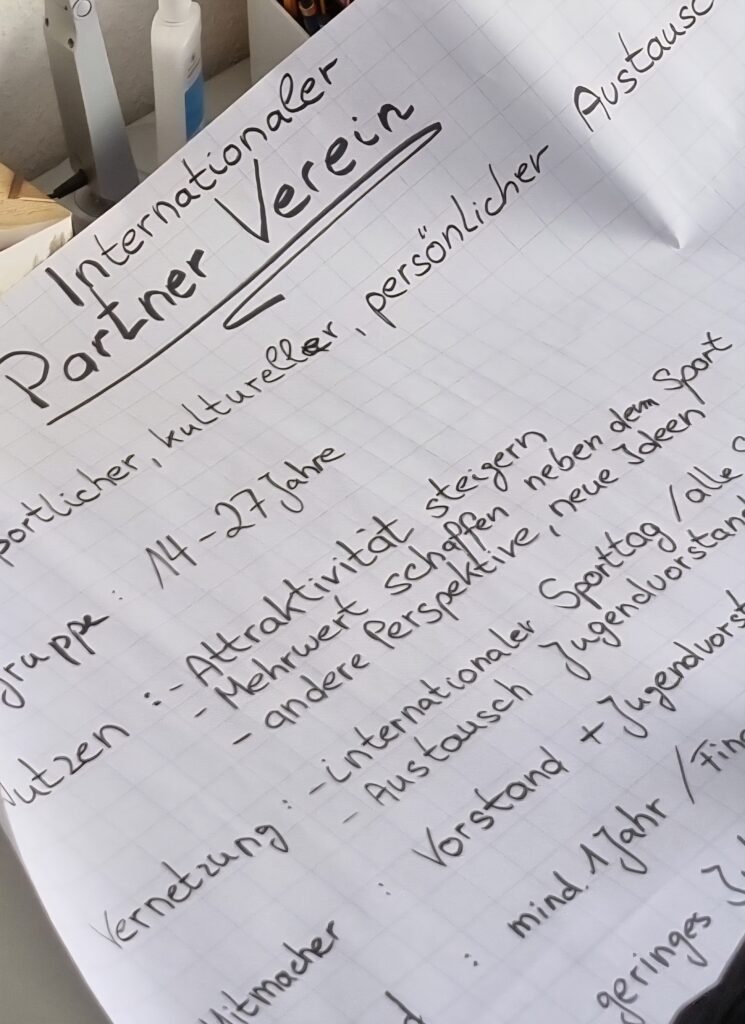 Internationaler
Partner Verein
portlicher, kultureller, persönlicher Austausc
gruppe : 14 - 27 Jahre
Nutzen : - Attraktivität steigern
- Mehrwert schaffen neben dem Sport
- andere Perspektive, neue Ideen
Vernetzung : - internationaler Sporttag / alle
- Austausch Jugendvorstand
Mitmacher : Vorstand + Jugendvorst
: mind. 1 Jahr / Fin
geringes